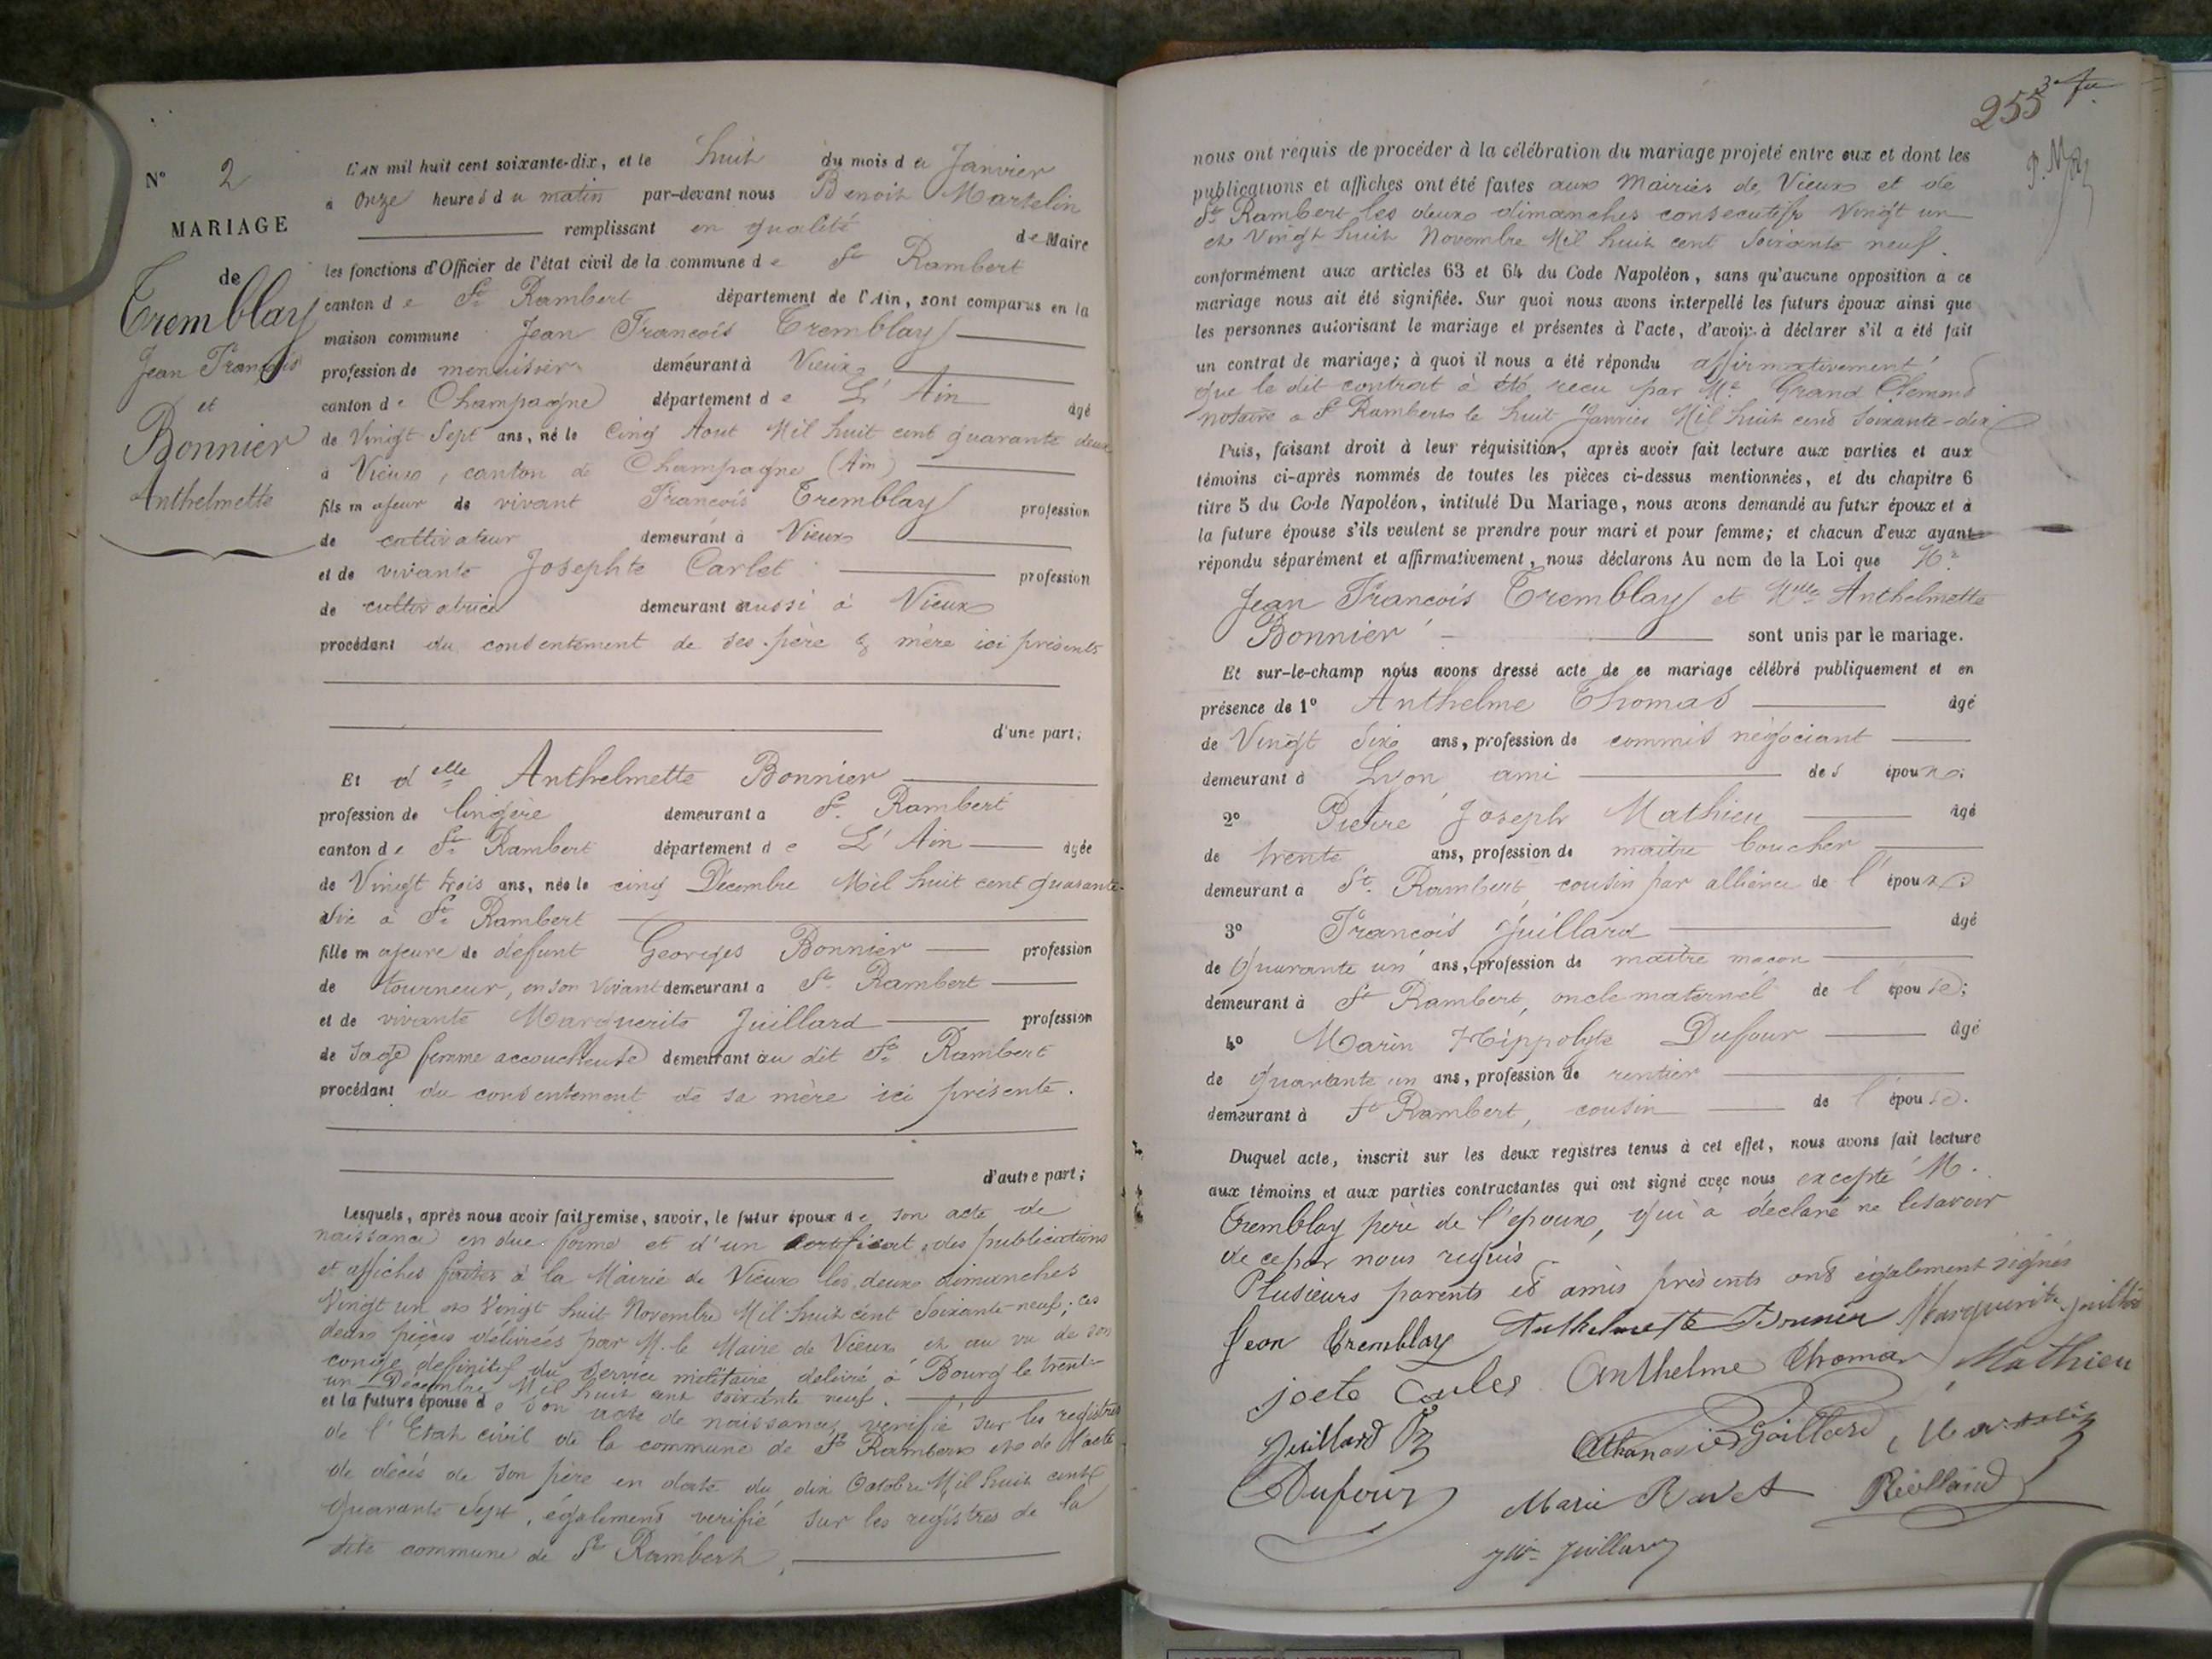 N° 2
MARIAGE
de
Tremblay
Jean François
et
Bonnier
Anthelmette
L'AN mil huit cent soixante-dix, et le huit du mois de Janvier
à onze heures du matin par-devant nous Benoit Martelin
remplissant en qualité de Maire
les fonctions d'Officier de l'état civil de la commune de St Rambert
canton de St Rambert département de l'Ain, sont comparus en la
maison commune Jean François Tremblay
profession de menuisier demeurant à Vieux
canton de Champagne département de L'Ain âgé
de Vingt Sept ans, né le Cinq Aout Mil huit cent quarante deux
à Vieux, canton de Champagne (Ain)
fils majeur de vivant François Tremblay profession
de cultivateur demeurant à Vieux
et de vivante Josephte Carlet profession
de cultivatrice demeurant aussi à Vieux
procédant du consentement de ses père & mère ici présents
d'une part;
Et delle Anthelmette Bonnier
profession de lingère demeurant a St Rambert
canton de St Rambert département de L'Ain âgée
de Vingt trois ans, née le cinq Décembre Mil huit cent quarante-
six à St Rambert
fille majeure de défunt Georges Bonnier profession
de tourneur, en son vivant demeurant a St Rambert
et de vivante Marguerite Juillard profession
de sage femme accoucheuse demeurant au dit St Rambert
procédant du consentement de sa mère ici présente.
d'autre part;
Lesquels, après nous avoir fait remise, savoir, le futur époux de son acte de
naissance en due forme et d'un certificat des publications
et affiches faites à la Mairie de Vieux les deux dimanches
Vingt un et Vingt huit Novembre Mil huit cent soixante neuf; ces
deux pièces délivrées par M. le Maire de Vieux et au vu de son
congé définitif du service militaire délivré à Bourg le trente-
un Décembre Mil huit cent soixante neuf.
et la future épouse de son acte de naissance, verifié sur les registres
de l'Etat civil de la commune de St Rambert et de l'acte
de décès de son père en date du dix Octobre Mil huit cent
quarante sept, également verifié sur les registres de la
dite commune de St Rambert.
255
nous ont requis de procéder à la célébration du mariage projeté entre eux et dont les
publications et affiches ont été faites aux Mairies de Vieux et de
St Rambert les deux dimanches consecutifs Vingt un
et Vingt huit Novembre Mil huit cent soixante neuf.
conformément aux articles 63 et 64 du Code Napoléon, sans qu'aucune opposition a ce
mariage nous ait été signifiée. Sur quoi nous avons interpellé les futurs époux ainsi que
les personnes autorisant le mariage et présentes à l'acte, d'avoir à déclarer s'il a été fait
un contrat de mariage; à quoi il nous a été répondu affirmativement
que le dit contrat à été recu par Me Grand Clement
notaire a St Rambert le huit Janvier Mil huit cent soixante-dix
Puis, faisant droit à leur réquisition, après avoir fait lecture aux parties et aux
témoins ci-après nommés de toutes les pièces ci-dessus mentionnées, et du chapitre 6
titre 5 du Code Napoléon, intitulé Du Mariage, nous avons demandé au futur époux et à
la future épouse s'ils veulent se prendre pour mari et pour femme; et chacun d'eux ayant
répondu séparément et affirmativement, nous déclarons Au nom de la Loi que Mr
Jean François Tremblay et Melle Anthelmette
Bonnier sont unis par le mariage.
Et sur-le-champ nous avons dressé acte de ce mariage célébré publiquement et en
présence de 1° Anthelme Thomas âgé
de Vingt six ans, profession de commis négociant
demeurant à Lyon, ami des époux;
2° Pierre Joseph Mathieu âgé
de trente ans, profession de maitre boucher
demeurant à St Rambert, cousin par alliance de l'époux;
3° François Juillard âgé
de Quarante un ans, profession de maître macon
demeurant à St Rambert, oncle maternel de l'épouse;
4° Marin Hippolyte Dufour âgé
de quarante un ans, profession de rentier
demeurant à St Rambert, cousin de l'épouse.
Duquel acte, inscrit sur les deux registres tenus à cet effet, nous avons fait lecture
aux témoins et aux parties contractantes qui ont signé avec nous excepté M.
Tremblay père de l'epoux, qui a déclaré ne le savoir
de ce par nous requis.
Plusieurs parents et amis présents ont également signés
Jean Tremblay Anthelmette Bonnier Marguerite Juillard
Anthelme Thomas Mathieu
Juillard Martelin
Dufour Marie Ravet
Juillard